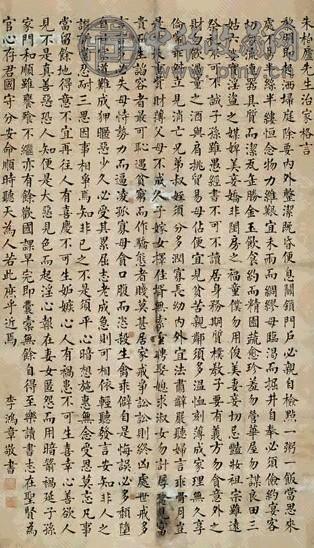 朱柏廬先生治家格言
黎明即起洒掃庭除要內外整潔既昏便息關鎖門戶必親自檢點一粥一飯當思來
處不易半絲半縷恆念物力維艱宜未雨而綢繆毋臨渴而掘井自奉必須儉約宴客
切勿留連器具質而潔瓦缶勝金玉飲食約而精園蔬愈珍羞勿營華屋勿謀良田三
姑六婆實淫盜之媒婢美妾嬌非閨房之福童僕勿用俊美妻妾切忌豔妝祖宗雖遠
祭祀不可不誠子孫雖愚經書不可不讀居身務期質樸教子要有義方勿貪意外之
財勿飲過量之酒與肩挑貿易毋佔便宜見貧苦親鄰須多溫恤刻薄成家理無久享
倫常乖舛立見消亡兄弟叔姪須分多潤寡長幼內外宜法肅辭嚴聽婦言乖骨肉豈
是丈夫重貲財薄父母不成人子嫁女擇佳婿毋索重聘娶媳求淑女勿計厚奩見富
貴而生諂容者最可恥遇貧窮而作驕態者賤莫甚居家戒爭訟訟則終凶處世戒多
言言多必失毋恃勢力而逼凌孤寡毋貪口腹而恣殺生禽乖僻自是悔誤必多頹墮
自甘家道難成狎暱惡少久必受其累屈志老成急則可相依輕聽發言安知非人之
譖愬當忍耐三思因事相爭焉知非己之不是須平心暗想施惠無念受恩莫忘凡事
當留餘地得意不宜再往人有喜慶不可生妒嫉心人有禍患不可生喜幸心善欲人
見不是真善惡恐人知便是大惡見色而起淫心報在妻女匿怨而用暗箭禍延子孫
家門和順雖饔飧不繼亦有餘歡國課早完即囊橐無餘自得至樂讀書志在聖賢為
官心存君國守分安命順時聽天為人若此庶乎近焉
李鴻章敬書
中华收藏网